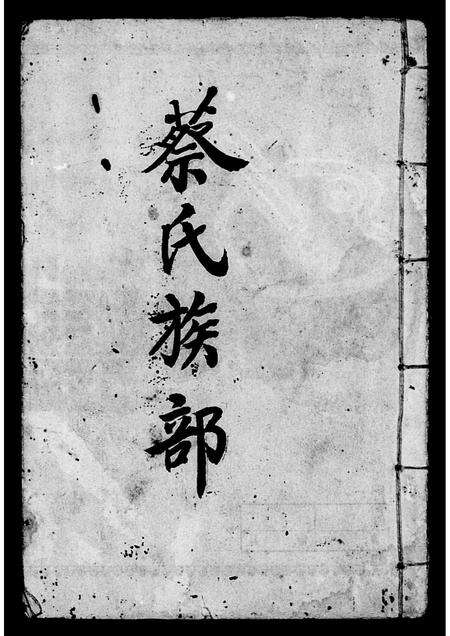 蔡氏族部